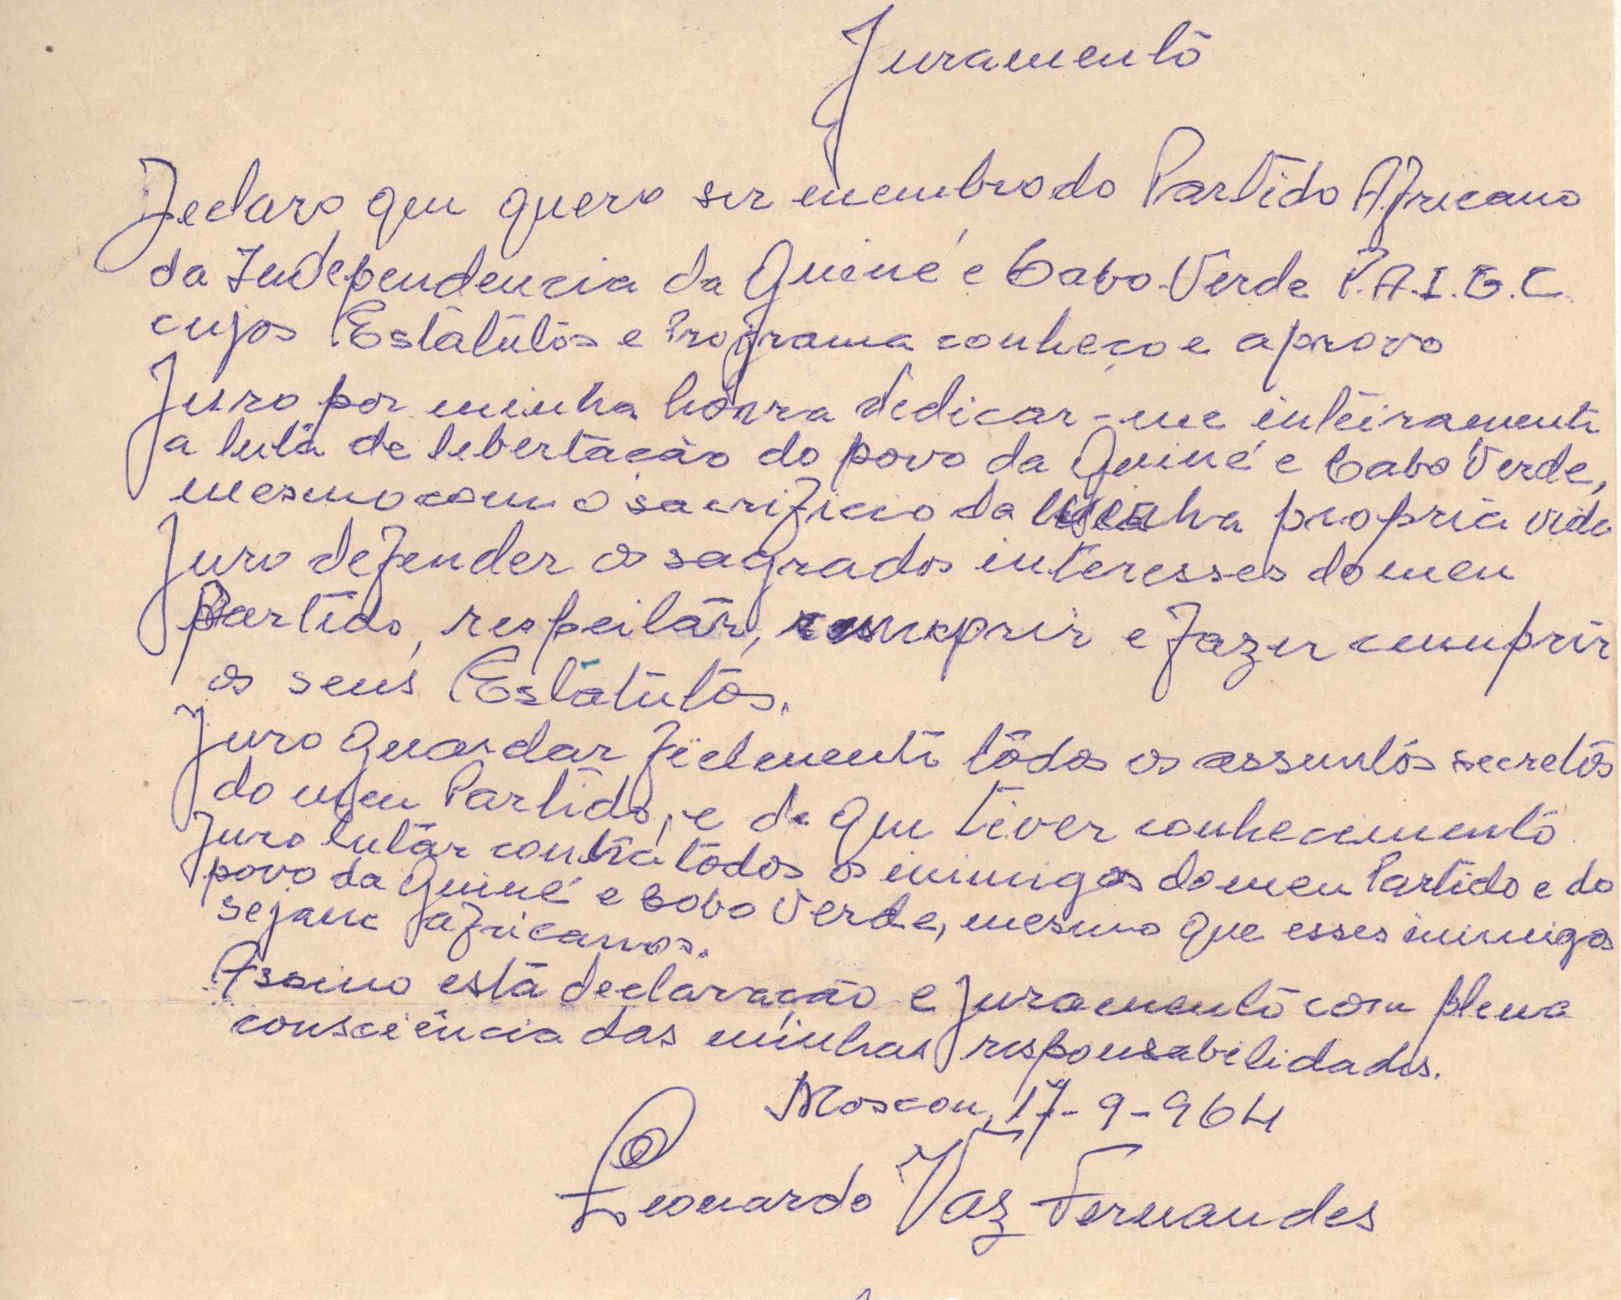 Juramento
Declaro que quero ser membro do Partido Africano
da Independencia da Guiné e Cabo Verde P.A.I.G.C
cujos Estatutos e Programa conheço e aprovo
Juro por minha honra dedicar-me inteiramente
a luta de libertação do povo da Guiné e Cabo Verde,
mesmo com o sacrificio da minha propria vida
Juro defender os sagrados interesses do meu
Partido, respeitar, cumprir e fazer cumprir
os seus Estatutos.
Juro guardar fielmente todos os assuntos secretos
do meu Partido, e de que tiver conhecimento
Juro lutar contra todos os inimigos do meu Partido e do
povo da Guiné e Cabo Verde, mesmo que esses inimigos
sejam africanos.
Assino esta declaração e juramento com plena
consciência das minhas responsabilidades.
Moscou, 17-9-964
Leonardo Vaz Fernandes